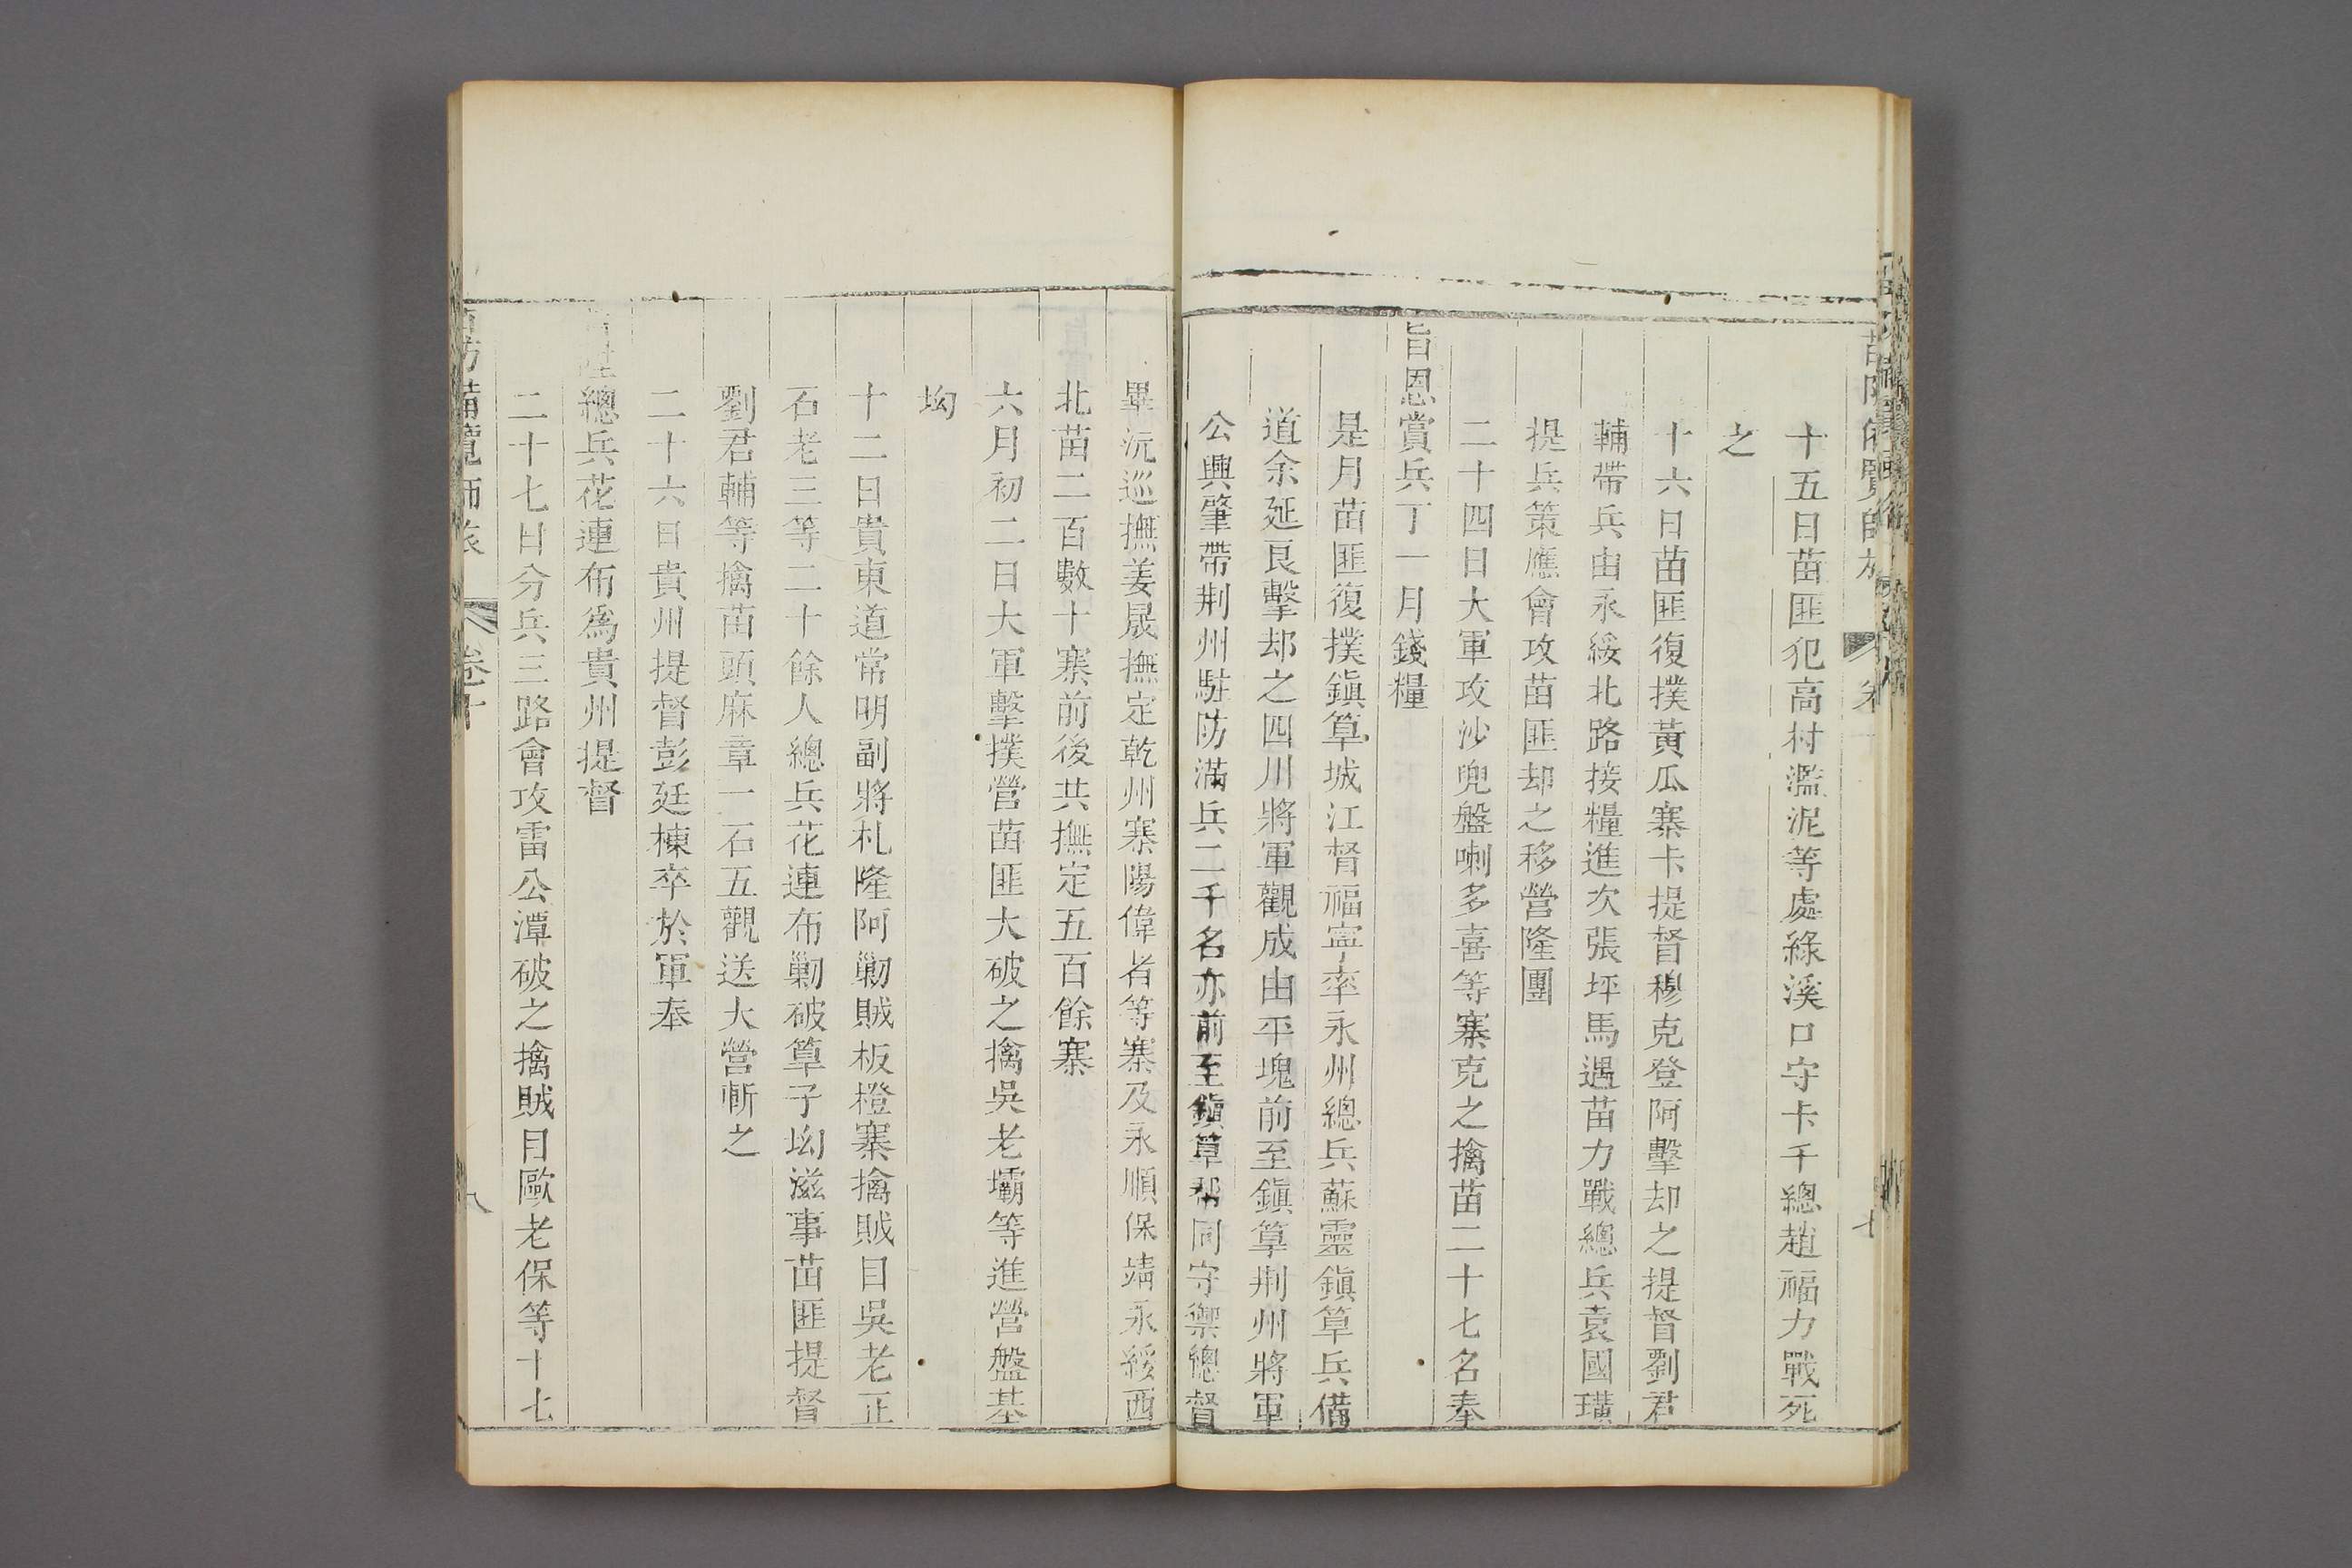 十五日苗匪犯高村濫泥等處綠溪口守卡千總趙福力戰死
之
十六日苗匪復撲黃瓜寨卡提督穆克登阿擊却之提督劉君
輔帶兵由永綏北路接糧進次張坪馬遇苗力戰總兵袁國璜
提兵策應會攻苗匪却之移營隆團
二十四日大軍攻沙兜盤喇多喜等寨克之擒苗二十七名奉
旨恩賞兵丁一月錢糧
是月苗匪復撲鎭筸城江督福寧率永州總兵蘇靈鎭筸兵備
道余延良擊却之四川將軍觀成由平塊前至鎭筸荆州將軍
公興肇帶荆州駐防滿兵二千名亦前至鎭筸帮同守禦總督
畢沅巡撫姜晟撫定乾州寨陽偉者等寨及永順保靖永綏西
北苗二百數十寨前後共撫定五百餘寨
六月初二日大軍擊撲營苗匪大破之擒吳老壩等進營盤基
坳
十二日貴東道常明副將札隆阿勦賊板橙寨擒賊目吳老正
石老三等二十餘人總兵花連布勦破筸子坳滋事苗匪提督
劉君輔等擒苗頭麻章一石五觀送大營斬之
二十六日貴州提督彭廷棟卒於軍奉
總兵花連布爲貴州提督
二十七日分兵三路會攻雷公潭破之擒賊目歐老保等十七
防備覽師旅 卷十 八